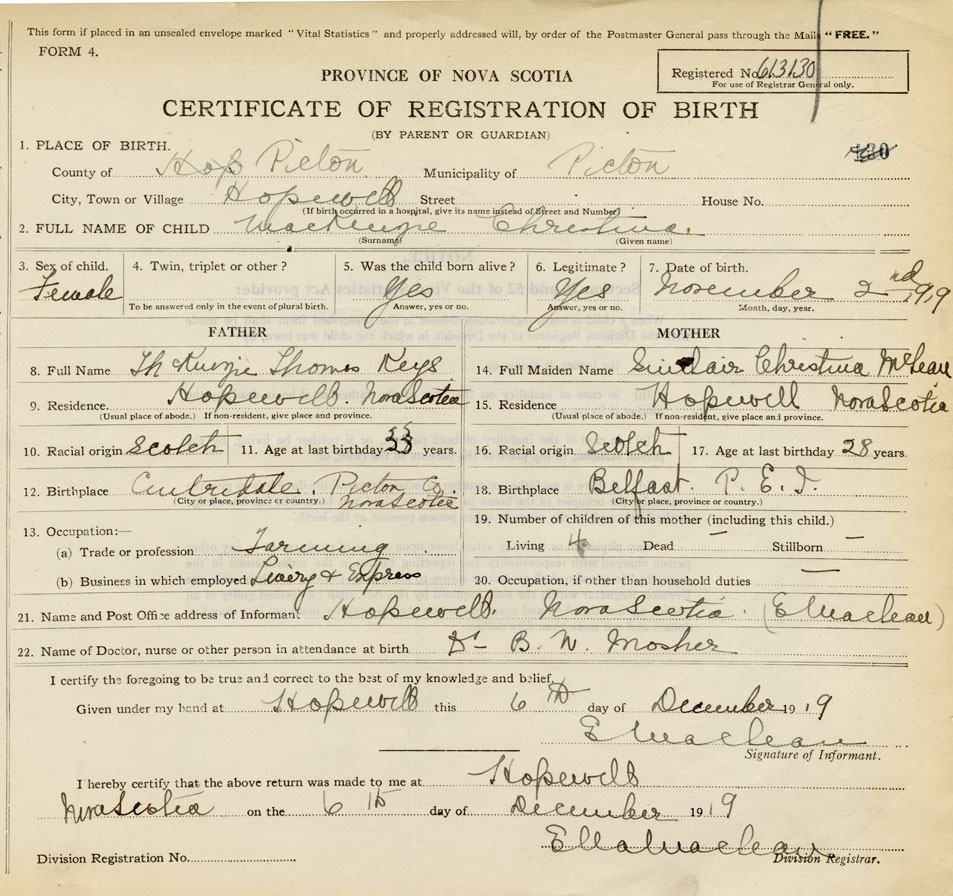 This form if placed in an unsealed envelope marked "Vital Statistics" and properly addressed will, by order of the Postmaster General pass through the Mails "FREE."
FORM 4.
Registered No. 613130
For use of Registrar General only.
PROVINCE OF NOVA SCOTIA
CERTIFICATE OF REGISTRATION OF BIRTH
(BY PARENT OR GUARDIAN)
1. PLACE OF BIRTH.
County of Hop Picton Municipality of Picton
City, Town or Village Hopewell Street House No.
(If birth occurred in a hospital, give its name instead of Street and Number)
2. FULL NAME OF CHILD MacKenzie Christina.
(Surname) (Given name)
3. Sex of child. 4. Twin, triplet or other? 5. Was the child born alive? 6. Legitimate? 7. Date of birth.
Female Yes Yes November 2nd 1919
To be answered only in the event of plural birth. Answer, yes or no. Answer, yes or no. Month, day, year.
FATHER MOTHER
8. Full Name McKenzie Thomas Keys 14. Full Maiden Name Sinclair Christina McLean
9. Residence. Hopewell Nova Scotia 15. Residence Hopewell Nova Scotia
(Usual place of abode.) If non-resident, give place and province. (Usual place of abode.) If non-resident, give place and province.
10. Racial origin Scotch 11. Age at last birthday 33 years. 16. Racial origin Scotch 17. Age at last birthday 28 years.
12. Birthplace Picton Co. Nova Scotia 18. Birthplace Belfast. P. E. I.
(City or place, province or country.) (City or place, province or country.)
13. Occupation:— 19. Number of children of this mother (including this child.)
(a) Trade or profession Farming Living 4 Dead — Stillborn —
(b) Business in which employed Livery & Express 20. Occupation, if other than household duties —
21. Name and Post Office address of Informant Hopewell. Nova Scotia (E Maclean)
22. Name of Doctor, nurse or other person in attendance at birth Dr B. W. Mosher
I certify the foregoing to be true and correct to the best of my knowledge and belief.
Given under my hand at Hopewell this 6th day of December 1919
E Maclean
Signature of Informant.
I hereby certify that the above return was made to me at Hopewell
Nova Scotia on the 6th day of December 1919
Ella Maclean
Division Registration No. Division Registrar.